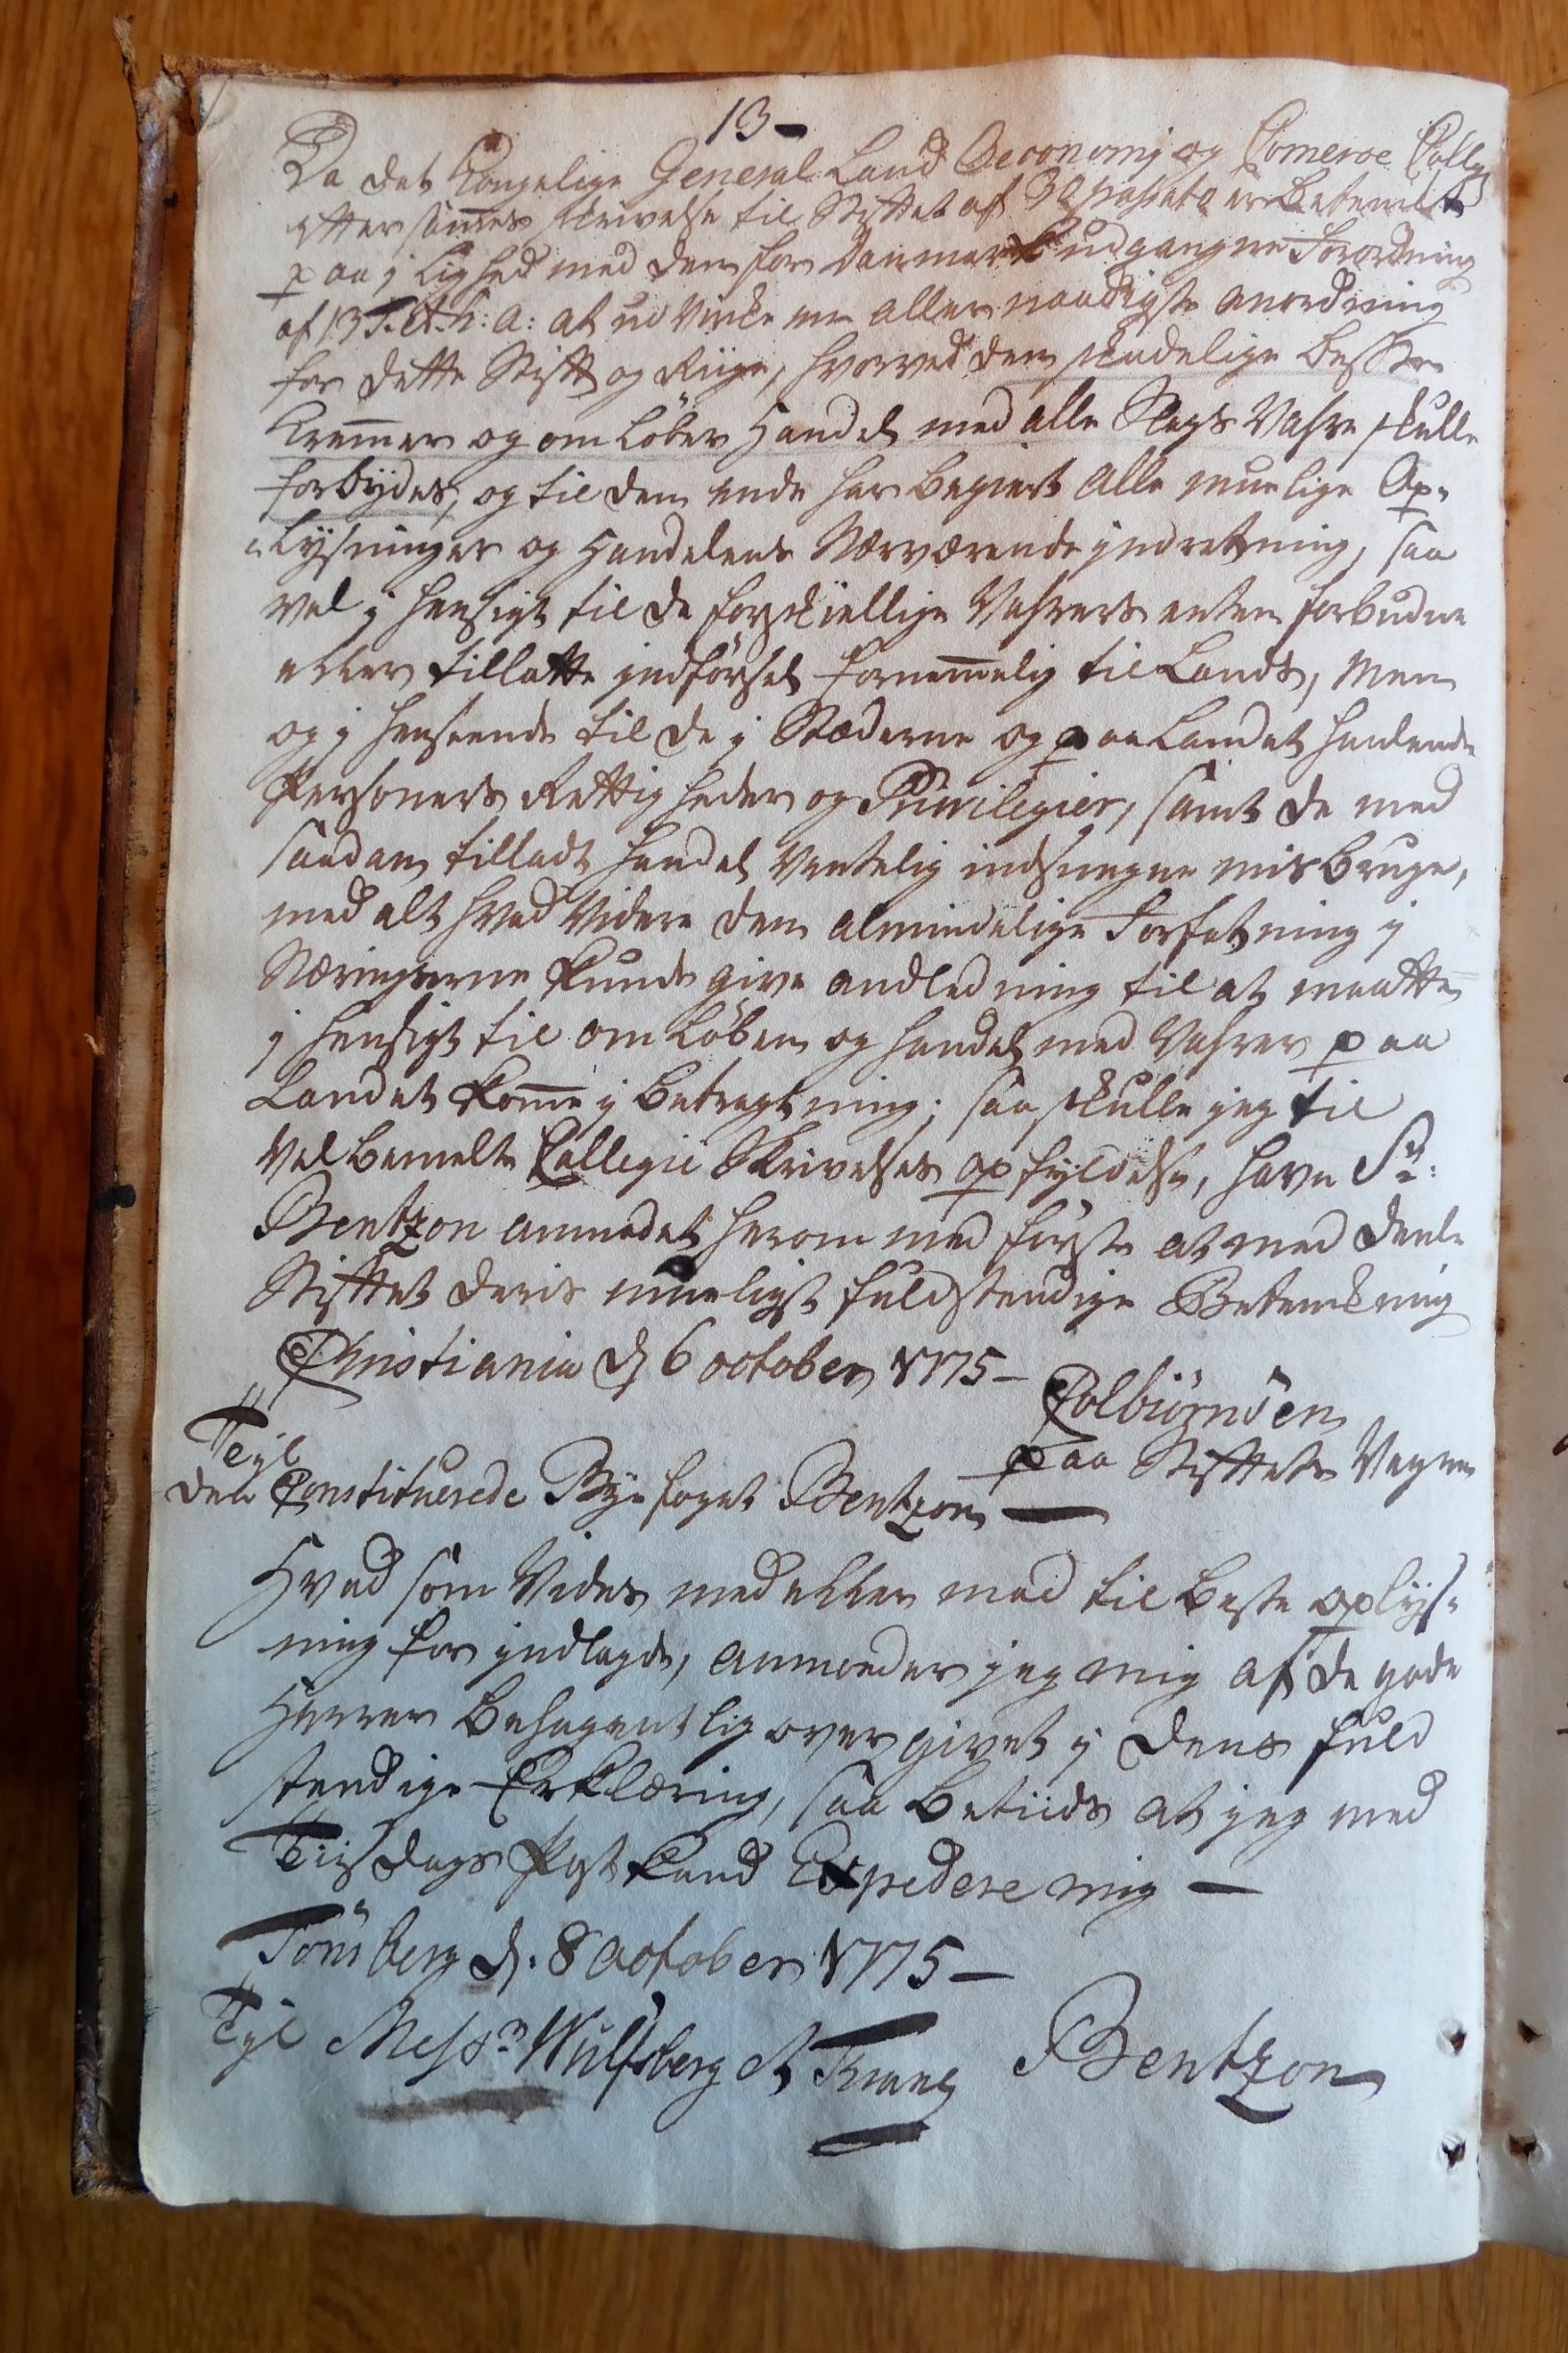 13-
Da det Kongelige General Land Oeconomj og Comerce Colleg
efter sames skrivelse til Stiftet af 30 passato er betenkt
paa j Lighed med den for Danmark udgangne Forordning
af 13 h: a: at udvirke en allernaadigste anordning
for dette Stift og Riige, hvorved den skadelige
Kremmer og omløber Handel med alle Slags Vahre skulle
forbydes, og til den ende har begiert alle muelige Op-
-lysninger og Handelens Nærværende jndretning, saa
vel j hensigt til de forskiellige Vahrers enten forbudne
eller tillatte jndførsel fornemelig til Lands, men
og j henseende til de j Stæderne og paa Landet handlende
Personers Rettigheder og Privilegier, samt de med
saadan tilladt handel Ventelig indsnegne misbruge,
med alt hvad Videre den almindelige Forfatning j
Næringerne kunde give andledning til at maatte
j hensigt til omløben og handel med Vahrer paa
Landet kome j betragtning; saa skulle jeg til
Velbemelte Collegii Skrivelses opfyldelse, have Sr:
Bentzon anmodet herom med første at meddeele
Stiftet deris mueligst fuldstendige Betenkning
Christiania d 6 october 1775-
Colbiørnsen
paa Stiftets Vegne
Teyl
den Constituerede Bye foget Bentzon
Hvad som Vides med eller mod til beste oplys-
ning for jndlagde, anmoder jeg mig af de gode
Herrer behagentlig overgivet j dens fuld
stendige Erklæring, saa betiids at jeg med
Tiisdags Post kand Expedere mig
Tønsberg d. 8 october 1775-
Bentzon
Tyl Messrs Wulfsberg & Krang